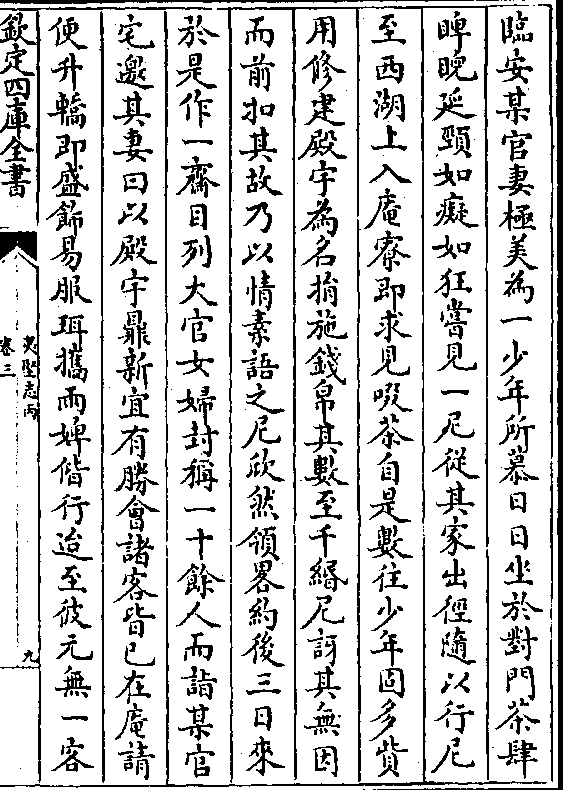 臨安某官妻極美為一少年所慕日日坐於對門茶肆
睥睨延頸如癡如狂嘗見一尼從其家出徑隨以行尼
至西湖上入庵寮即求見啜茶自是數往少年固多貲
用修建殿宇為名捐施錢帛其數至千緡尼訝其無因
而前扣其故乃以情素語之尼欣然領畧約後三日來
於是作一齋目列大官女婦封稱一十餘人而詣某官
宅邀其妻曰以殿宇鼎新宜有勝會諸客皆已在庵請
便升轎即盛飾易服珥攜兩婢偕行迨至彼元無一客
欽定四庫全書
夷堅志丙
卷三
九